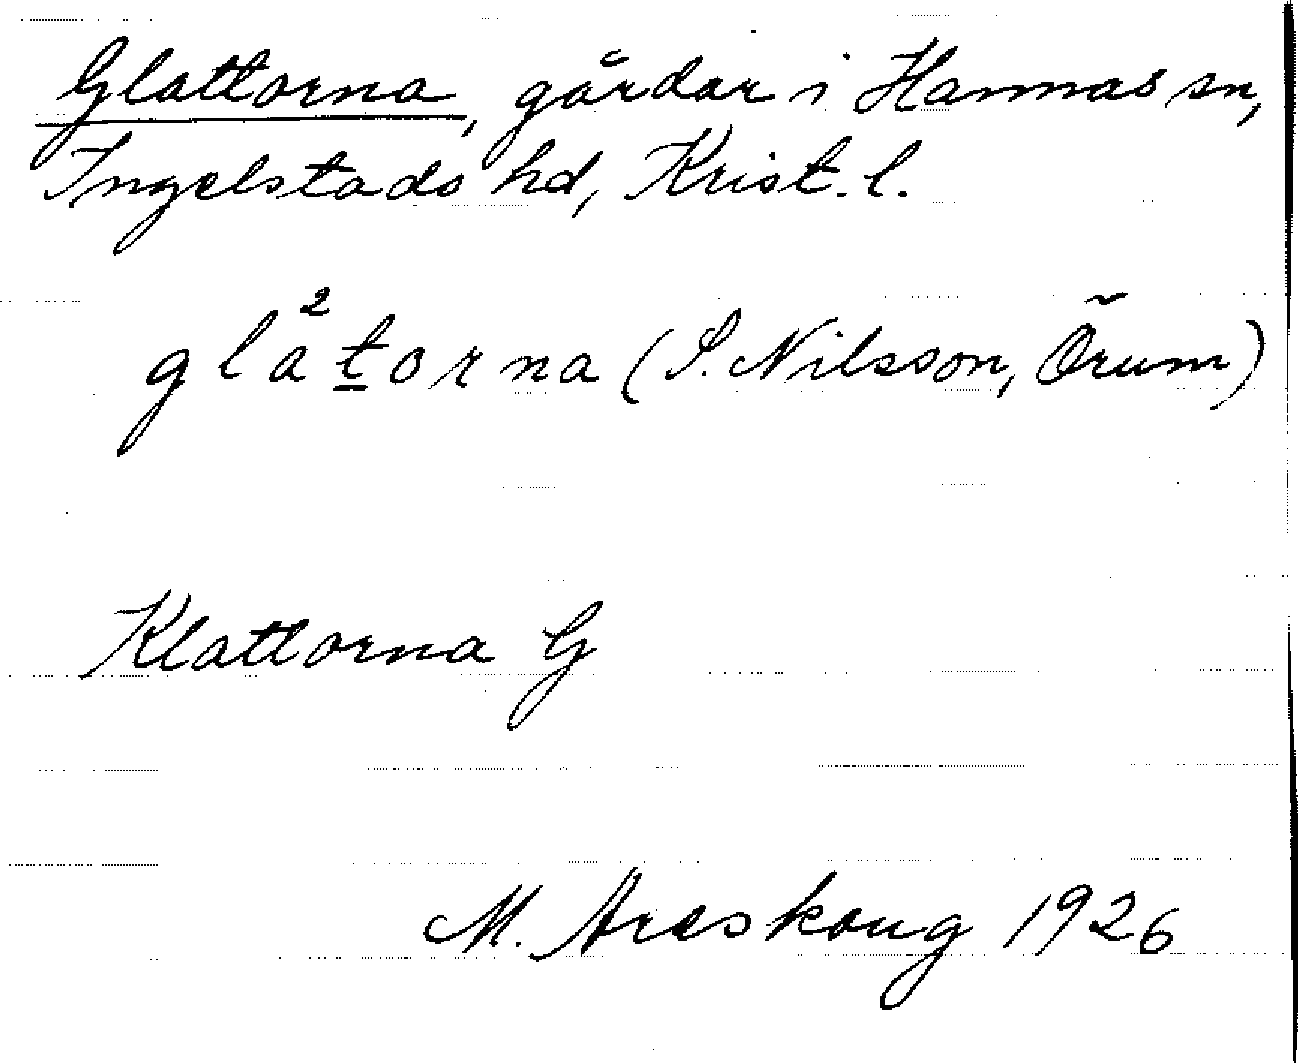 Glattorna, gårdar i Hannas sn,
Ingelstads hd, Krist. l.
gla²t̲orna (S. Nilsson, Örum)
Klattorna G
M. Areskoug 1926